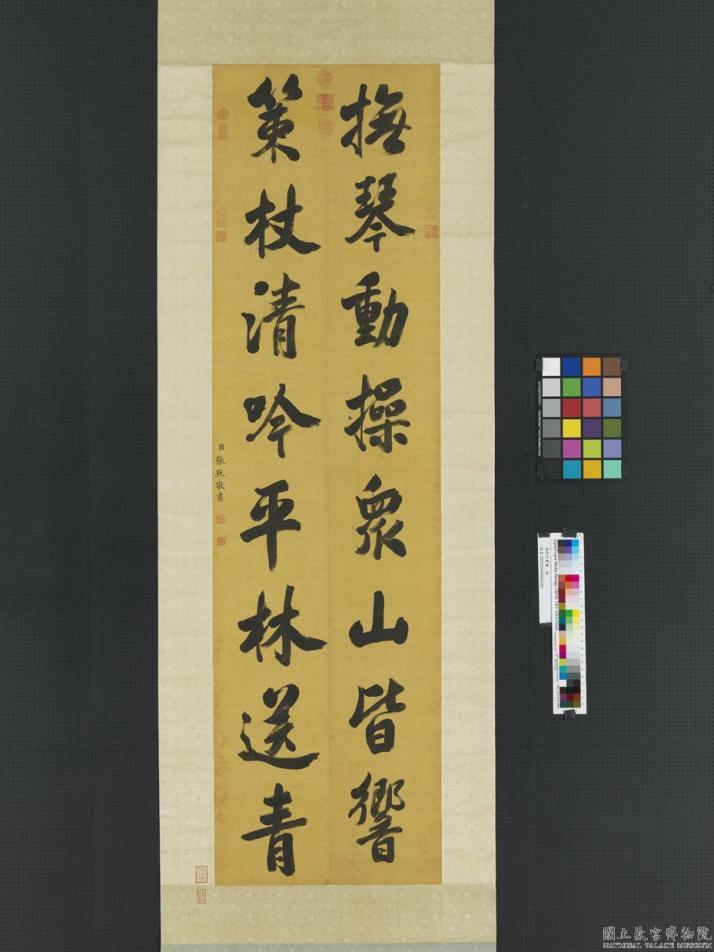 撫琴動操眾山皆響
策杖清吟平林送青
臣張照敬書
國立故宮博物院
NATIONAL PALACE MUSEUM